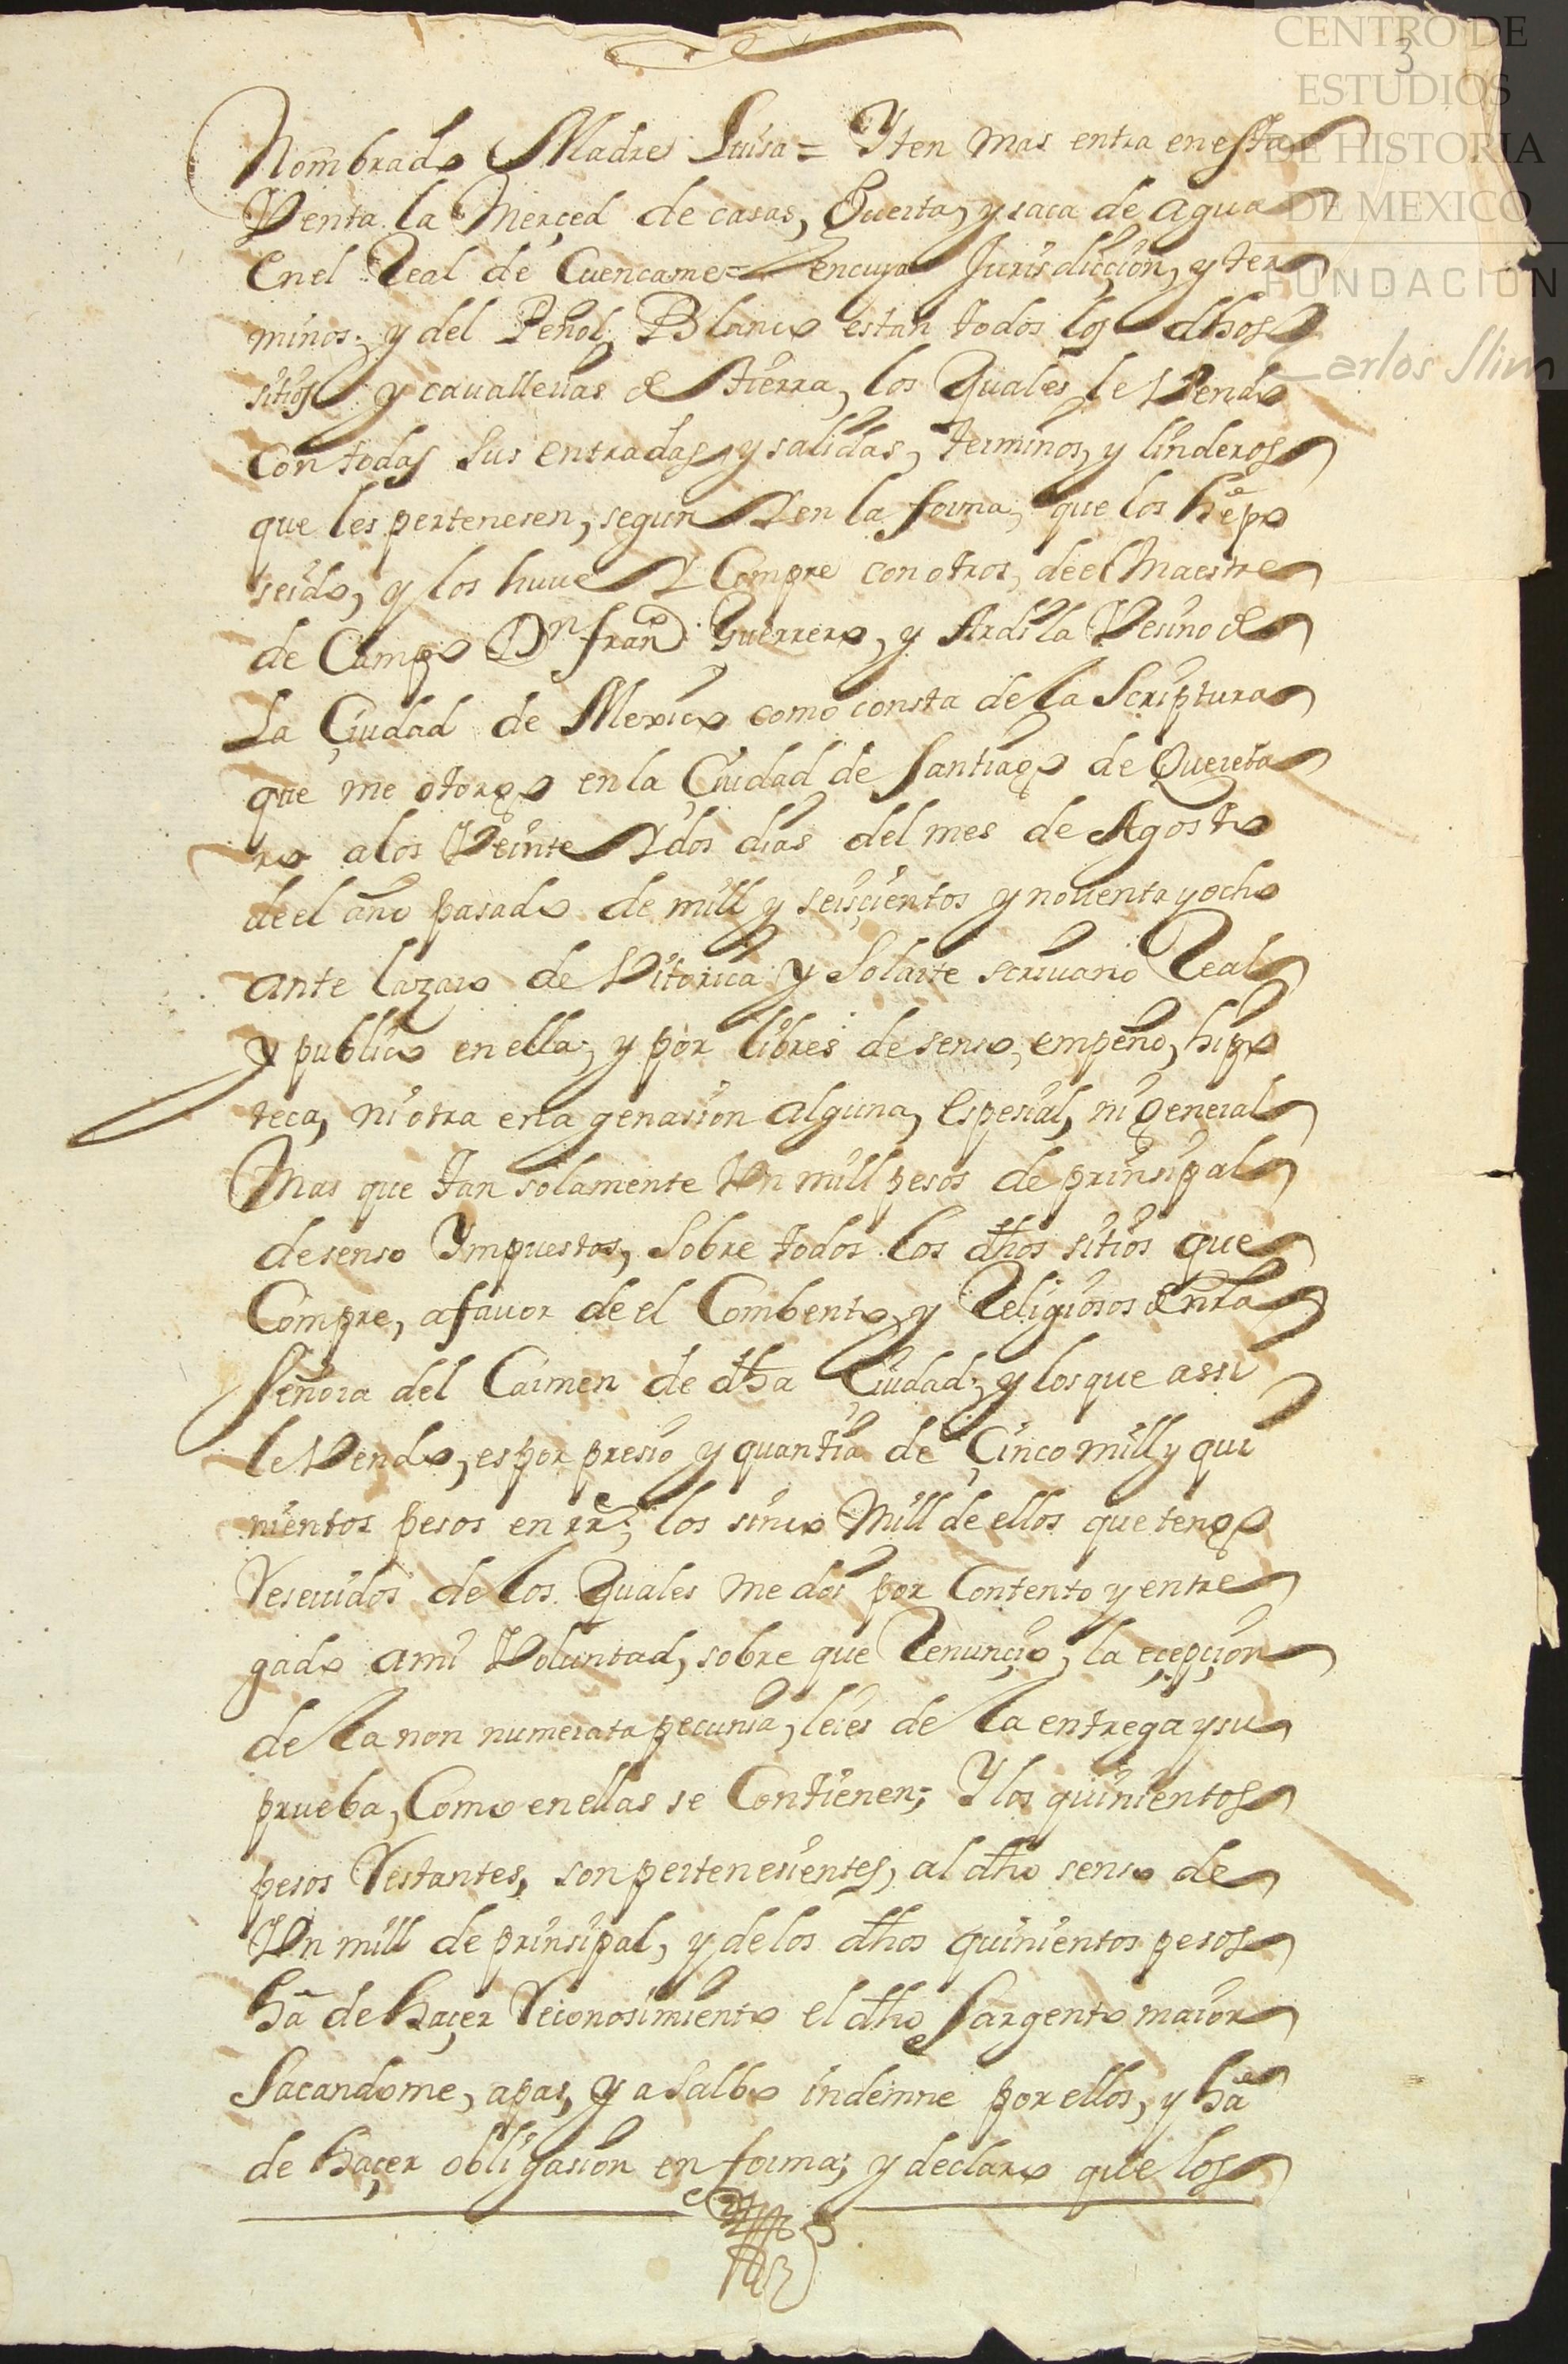 CENTRO DE
ESTUDIOS
DE HISTORIA
DE MEXICO
FUNDACIÓN
Carlos Slim
3
Nombrado Madre Luisa = Yten mas entra enesta
Venta la Merçed de casas, Guerta, y saca de agua
Enel Real de Cuencame = encuya Jurisdiccion, y ter
minos; y del Peñol Blanco estan todos los dhos
sitios y cauallerias de tierra, los Quales le Vendo
Con todas sus entradas, y salidas, terminos, y linderos
que les pertenesen, segun Y en la forma, que los he po
seido, y los huue Y Compre con otros, de el Maestre
de Campo Dn franco Guerrero, y Ardila Vesino de
La Çiudad de Mexico como consta de la Scriptura
que me otorgo en la Çiudad de Santiago de Quereta
ro a los Veinte Y dos dias del mes de Agosto
de el año pasado de mill y seisçientos y nouenta y ocho
ante Lazaro de Vitorica y Solarte scriuano Real
y publico en ella; y por libres de senso, empeño, hipo
teca, ni otra enagenasion alguna, Espesial, ni general
Mas que tan solamente Vn mill pesos de prinsipal
de senso Ympuestos, Sobre todos los dhos sitios que
Compre, a fauor de el Combento, y Religiosos de nra
Señora del Carmen de dha Çiudad; y los que assi
le Vendo, es por presio y quantia de Çinco mill y qui
nientos pesos en rrs; los sinco Mill de ellos que tengo
Reseuidos de los Quales me doi por Contento y entre
gado a mi Voluntad, sobre que Renunçio, la eçepçion
de la non numerata pecunia, leies de la entrega y su
prueba, Como en ellas se Contienen; Y los quinientos
pesos Restantes, son pertenesientes, al dho senso de
Vn mill de prinsipal, y de los dhos quinientos pesos
ha de haçer Reconosimiento el dho Sargento maior
Sacandome, a pas, y a Salbo indemne por ellos, y ha
de haçer obligasion en forma; y declaro que los